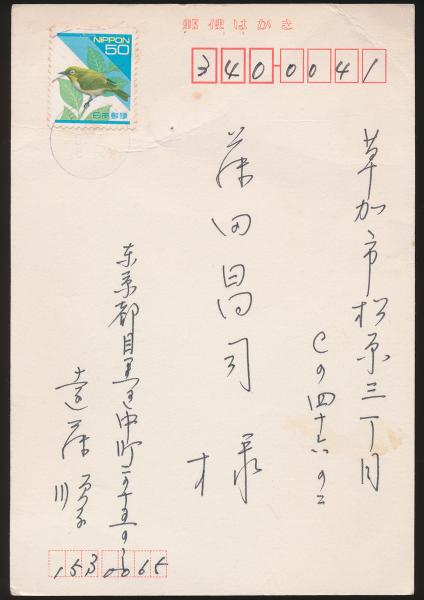 郵便はがき
NIPPON
50
日本郵便
340-0041
草加市松原三丁目
Cの四十六の二
藤田昌司様
東京都目黒区中町
遠藤順子
1530065